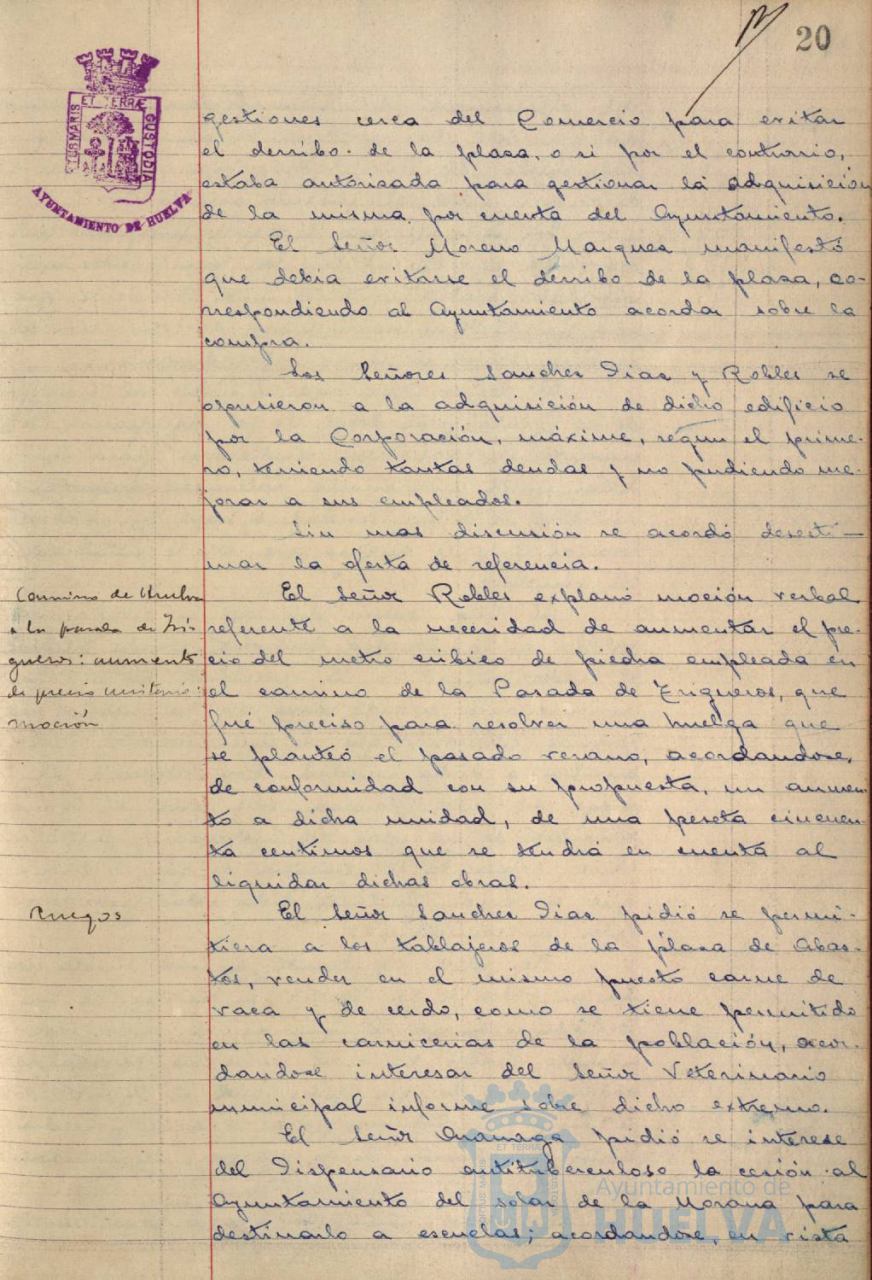 20
PORTUS MARIS ET TERRÆ CUSTODIA
AYUNTAMIENTO DE HUELVA
gestiones cerca del Comercio para evitar
el derribo de la plaza, o si por el contrario,
estaba autorizada para gestionar la adquisición
de la misma por cuenta del Ayuntamiento.
El Señor Moreno Marquez manifestó
que debia evitarse el derribo de la plaza, co-
rrespondiendo al Ayuntamiento acordar sobre la
compra.
Los Señores Sanchez Diaz y Robles se
opusieron a la adquisición de dicho edificio
por la Corporación, máxime, según el prime-
ro, teniendo tantas deudas y no pudiendo me-
jorar a sus empleados.
Sin mas discusión se acordó desesti-
mar la oferta de referencia.
Camino de Huelva
a la parada de Tri-
gueros: aumento
de precio unitario:
moción
El Señor Robles explanó moción verbal
referente a la necesidad de aumentar el pre-
cio del metro cúbico de piedra empleada en
el camino de la Parada de Trigueros, que
fué preciso para resolver una huelga que
se planteó el pasado verano, acordandose,
de conformidad con su propuesta, un aumen-
to a dicha unidad, de una peseta cincuen-
ta centimos que se tendrá en cuenta al
liquidar dichas obras.
Ruegos
El Señor Sanchez Diaz pidió se permi-
tiera a los tablajeros de la plaza de Abas-
tos, vender en el mismo puesto carne de
vaca y de cerdo, como se tiene permitido
en las carnicerias de la población, acor-
dandose interesar del Señor Veterinario
municipal informe sobre dicho extremo.
El Señor pidió se interese
del Dispensario antituberculoso la cesión al
Ayuntamiento del solar de la Morana para
destinarlo a escuelas; acordandose, en vista
Ayuntamiento de
HUELVA